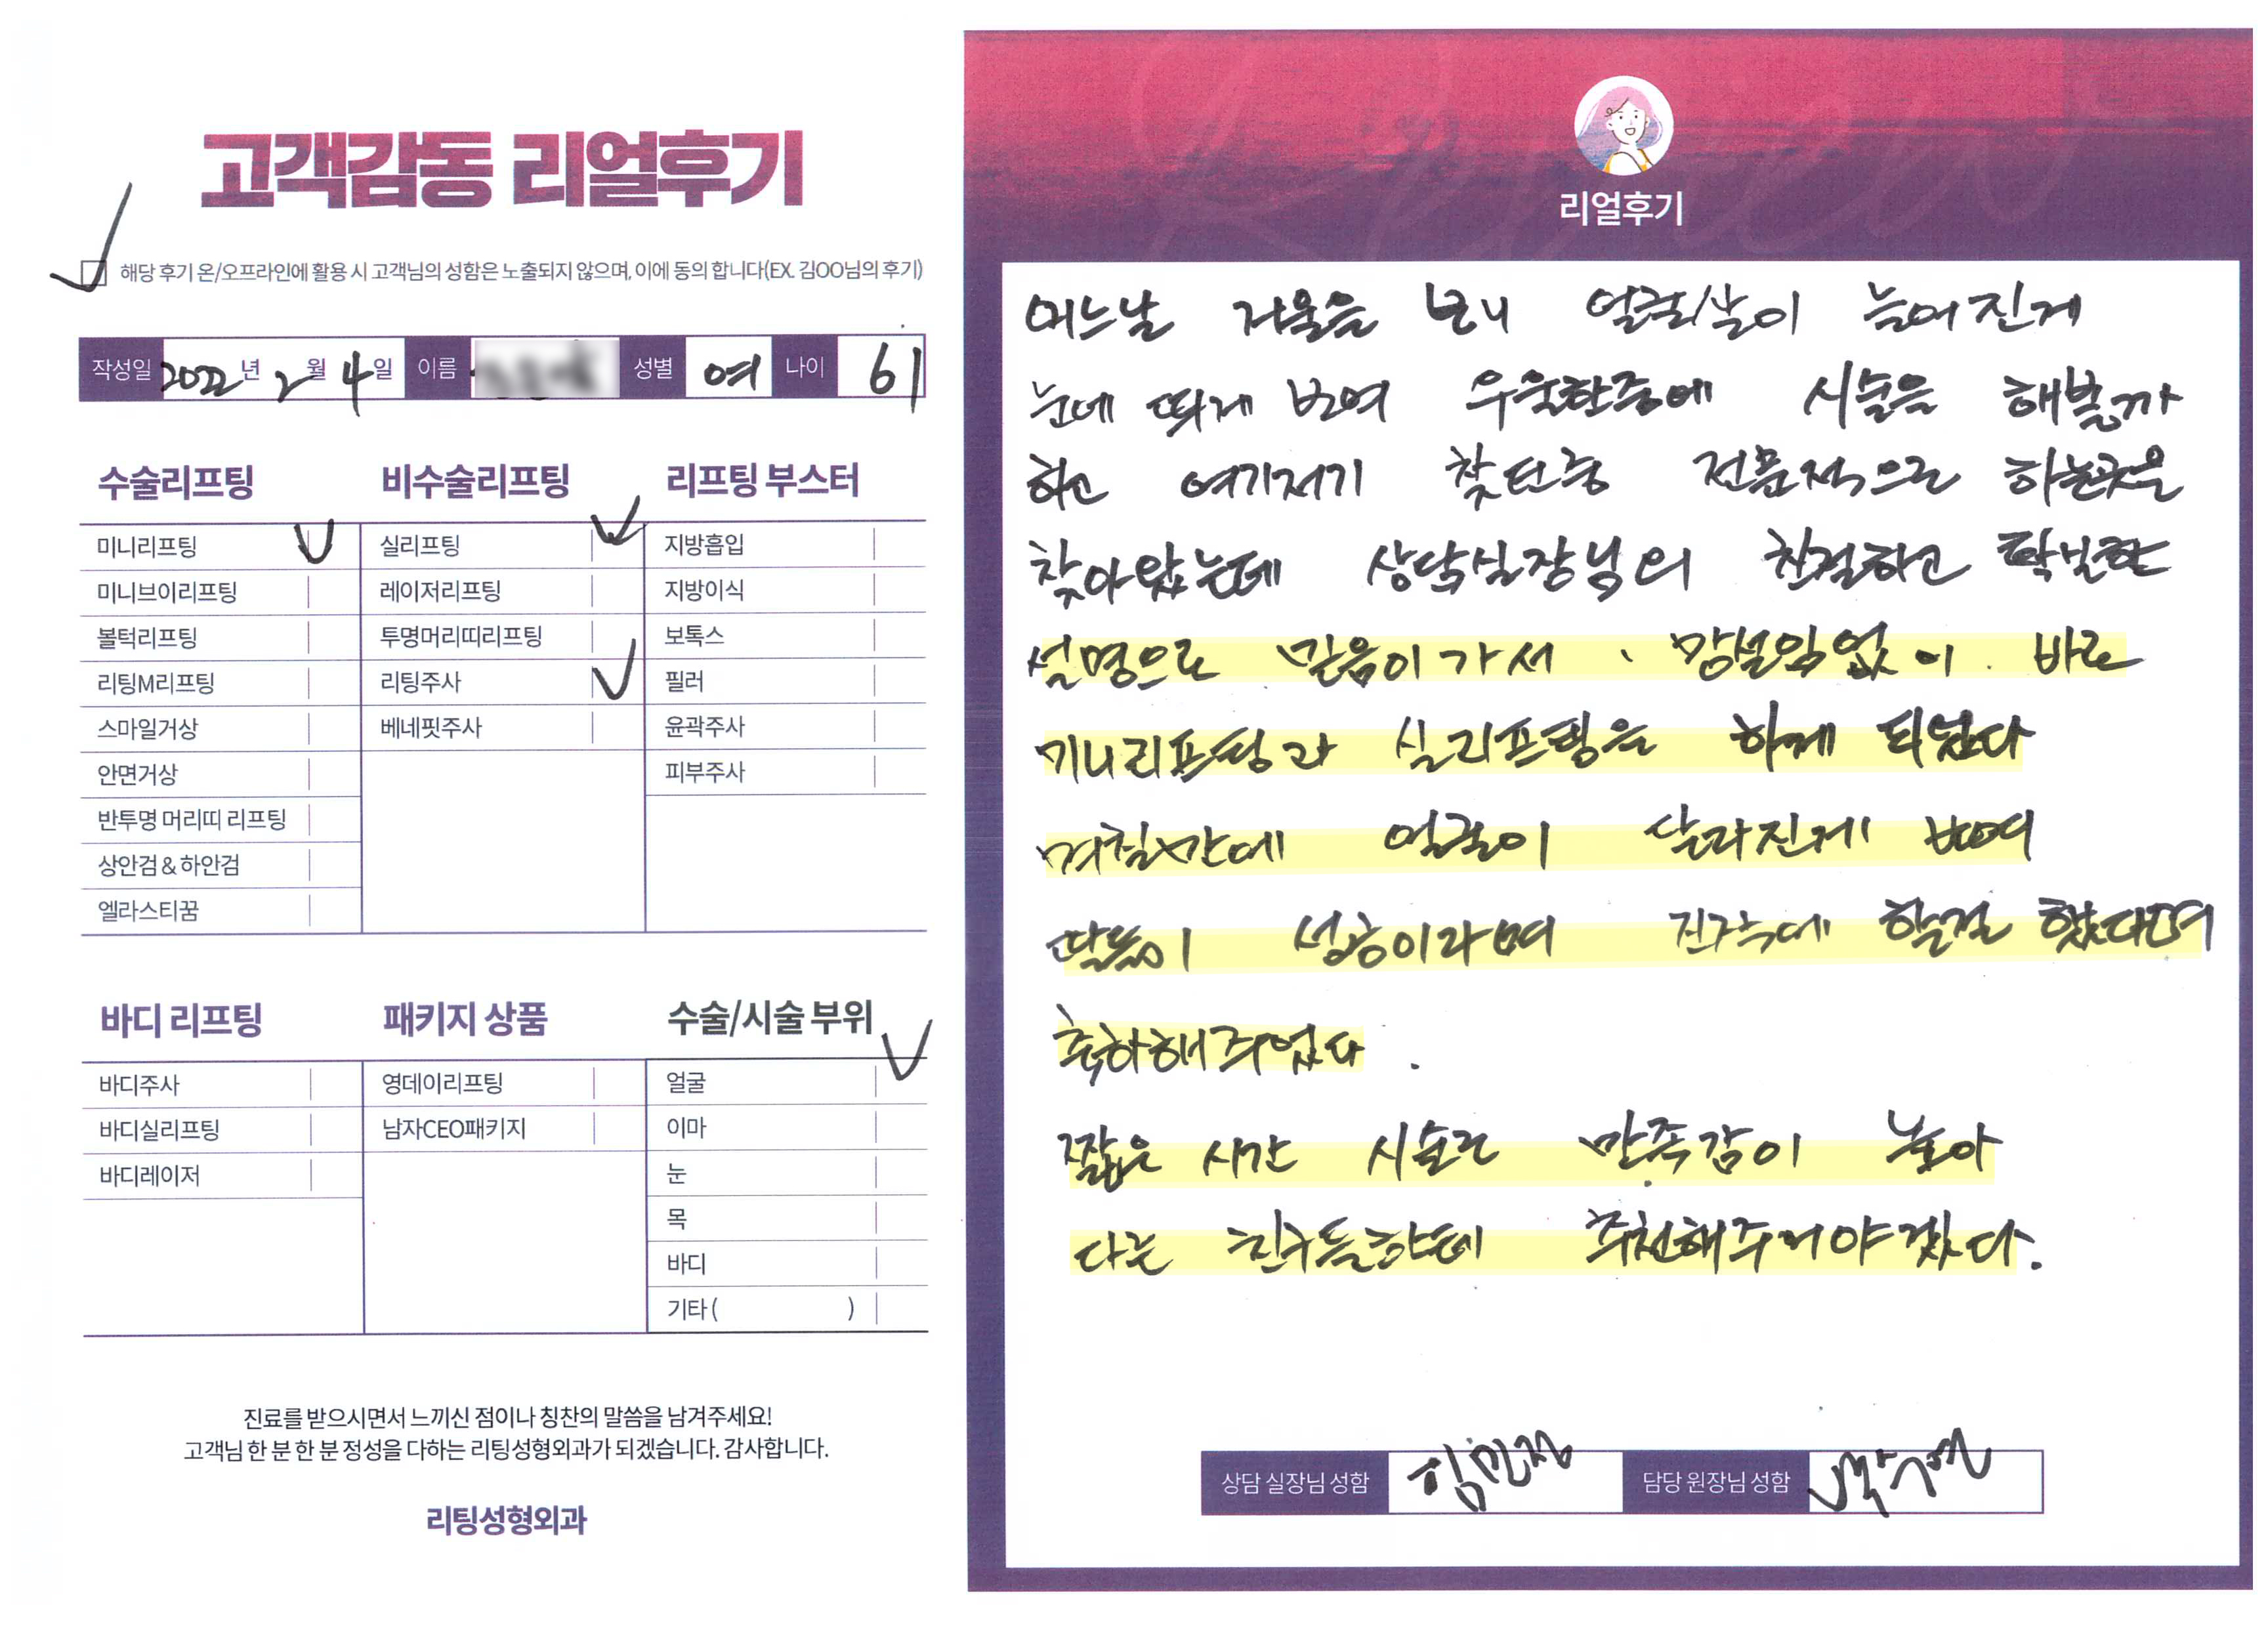 고객감동 리얼후기
해당 후기 온/오프라인에 활용 시 고객님의 성함은 노출되지 않으며, 이에 동의 합니다(EX. 김OO님의 후기)
작성일 2022년 2월 4일 이름 성별 여 나이 61
수술리프팅
미니리프팅
미니브이리프팅
볼턱리프팅
리팅M리프팅
스마일거상
안면거상
반투명 머리띠 리프팅
상안검 & 하안검
엘라스티꿈
비수술리프팅
실리프팅
레이저리프팅
투명머리띠리프팅
리팅주사
베네핏주사
리프팅 부스터
지방흡입
지방이식
보톡스
필러
윤곽주사
피부주사
바디 리프팅
바디주사
바디실리프팅
바디레이저
패키지 상품
영데이리프팅
남자CEO패키지
수술/시술 부위
얼굴
이마
눈
목
바디
기타 ( )
진료를 받으시면서 느끼신 점이나 칭찬의 말씀을 남겨주세요!
고객님 한 분 한 분 정성을 다하는 리팅성형외과가 되겠습니다. 감사합니다.
리팅성형외과
리얼후기
어느날 거울을 보니 얼굴살이 늘어진게
눈에 띄게 보여 우울한중에 시술을 해볼까
하고 여기저기 찾던중 전문적으로 하는곳을
찾아왔는데 상담실장님의 친절하고 확실한
설명으로 믿음이가서 망설임없이 바로
미니리프팅과 실리프팅을 하게 되었다
며칠간에 얼굴이 달라진게 보여
딸들이 성공이라며 진작에 할걸 했다며
축하해주었다.
짧은 시간 시술로 만족감이 높아
다른 친구들한테 추천해주어야겠다.
상담 실장님 성함
담당 원장님 성함